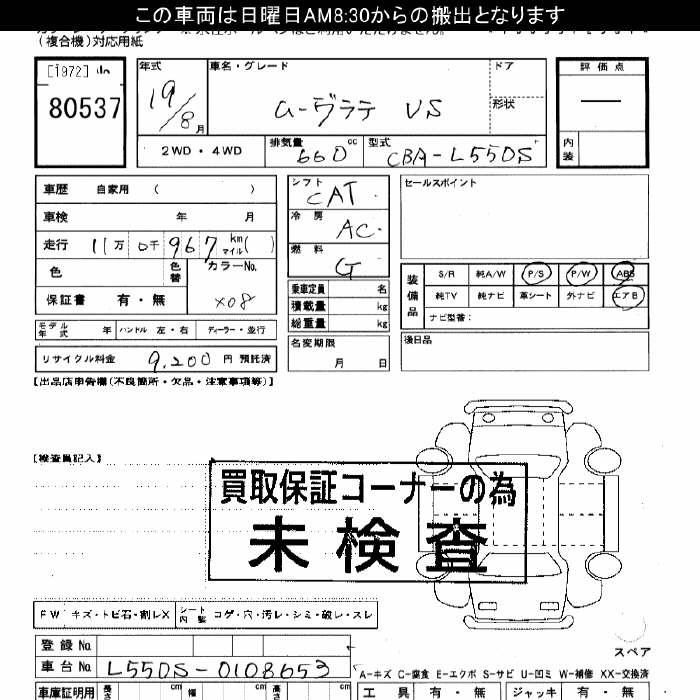 この車両は日曜日AM8:30からの搬出となります
(複合機)対応用紙
[1972]
80537
年式
19/8月
車名・グレード
ムーヴラテ VS
ドア
形状
評価点
内装
2WD・4WD
排気量 660 cc
型式 CBA-L550S
車歴 自家用 ( )
車検 年 月
走行 11万 0千 967 km マイル( )
色 色替 カラーNo.
X08
保証書 有・無
モデル年式 年 ハンドル 左・右 ディーラー・並行
リサイクル料金 9,200 円 預託済
シフト CAT
冷房 AC
燃料 G
乗車定員 名
積載量 kg
総重量 kg
名変期限
月 日
セールスポイント
装備品
S/R 純A/W P/S P/W ABS
純TV 純ナビ 革シート 外ナビ エアB
ナビ型番:
後日品
【出品店申告欄(不良箇所・欠品・注意事項等)】
【検査員記入】
買取保証コーナーの為
未検査
FW キズ・トビ石・割レX シート内装 コゲ・穴・汚レ・シミ・破レ・スレ
スペア
登録No.
車台No. L550S-0108653
A-キズ C-腐食 E-エクボ S-サビ U-凹ミ W-補修 XX-交換済
車庫証明用 長さ cm 幅 cm 高さ cm
工具 有・無 ジャッキ 有・無